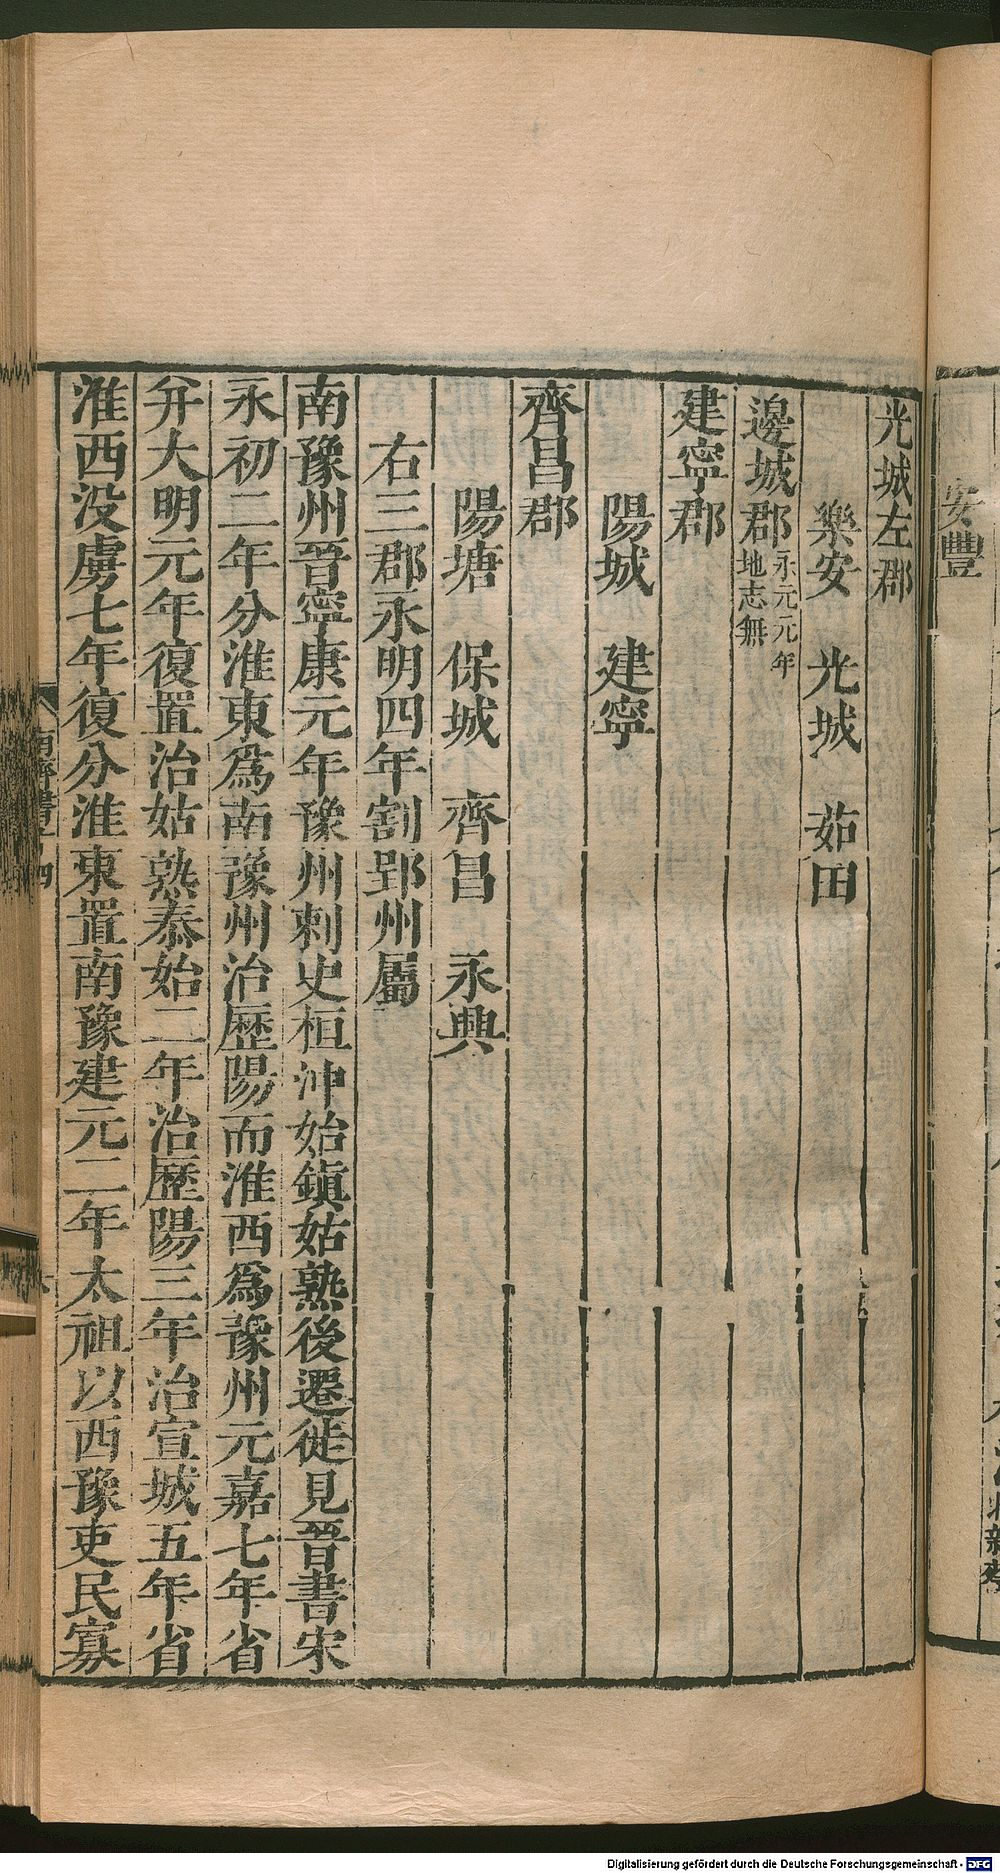 安豐
光城左郡
樂安 光城 茹田
邊城郡永元元年地志無
建寧郡
陽城 建寧
齊昌郡
陽塘 保城 齊昌 永興
右三郡永明四年割郢州屬
南豫州晉寧康元年豫州刺史桓沖始鎮姑熟後遷徙見晉書宋
永初二年分淮東爲南豫州治歷陽而淮西爲豫州元嘉七年省
并大明元年復置治姑熟泰始二年治歷陽三年治宣城五年省
淮西没虜七年復分淮東置南豫建元二年太祖以西豫吏民寡
Digitalisierung gefördert durch die Deutsche Forschungsgemeinschaft - DFG